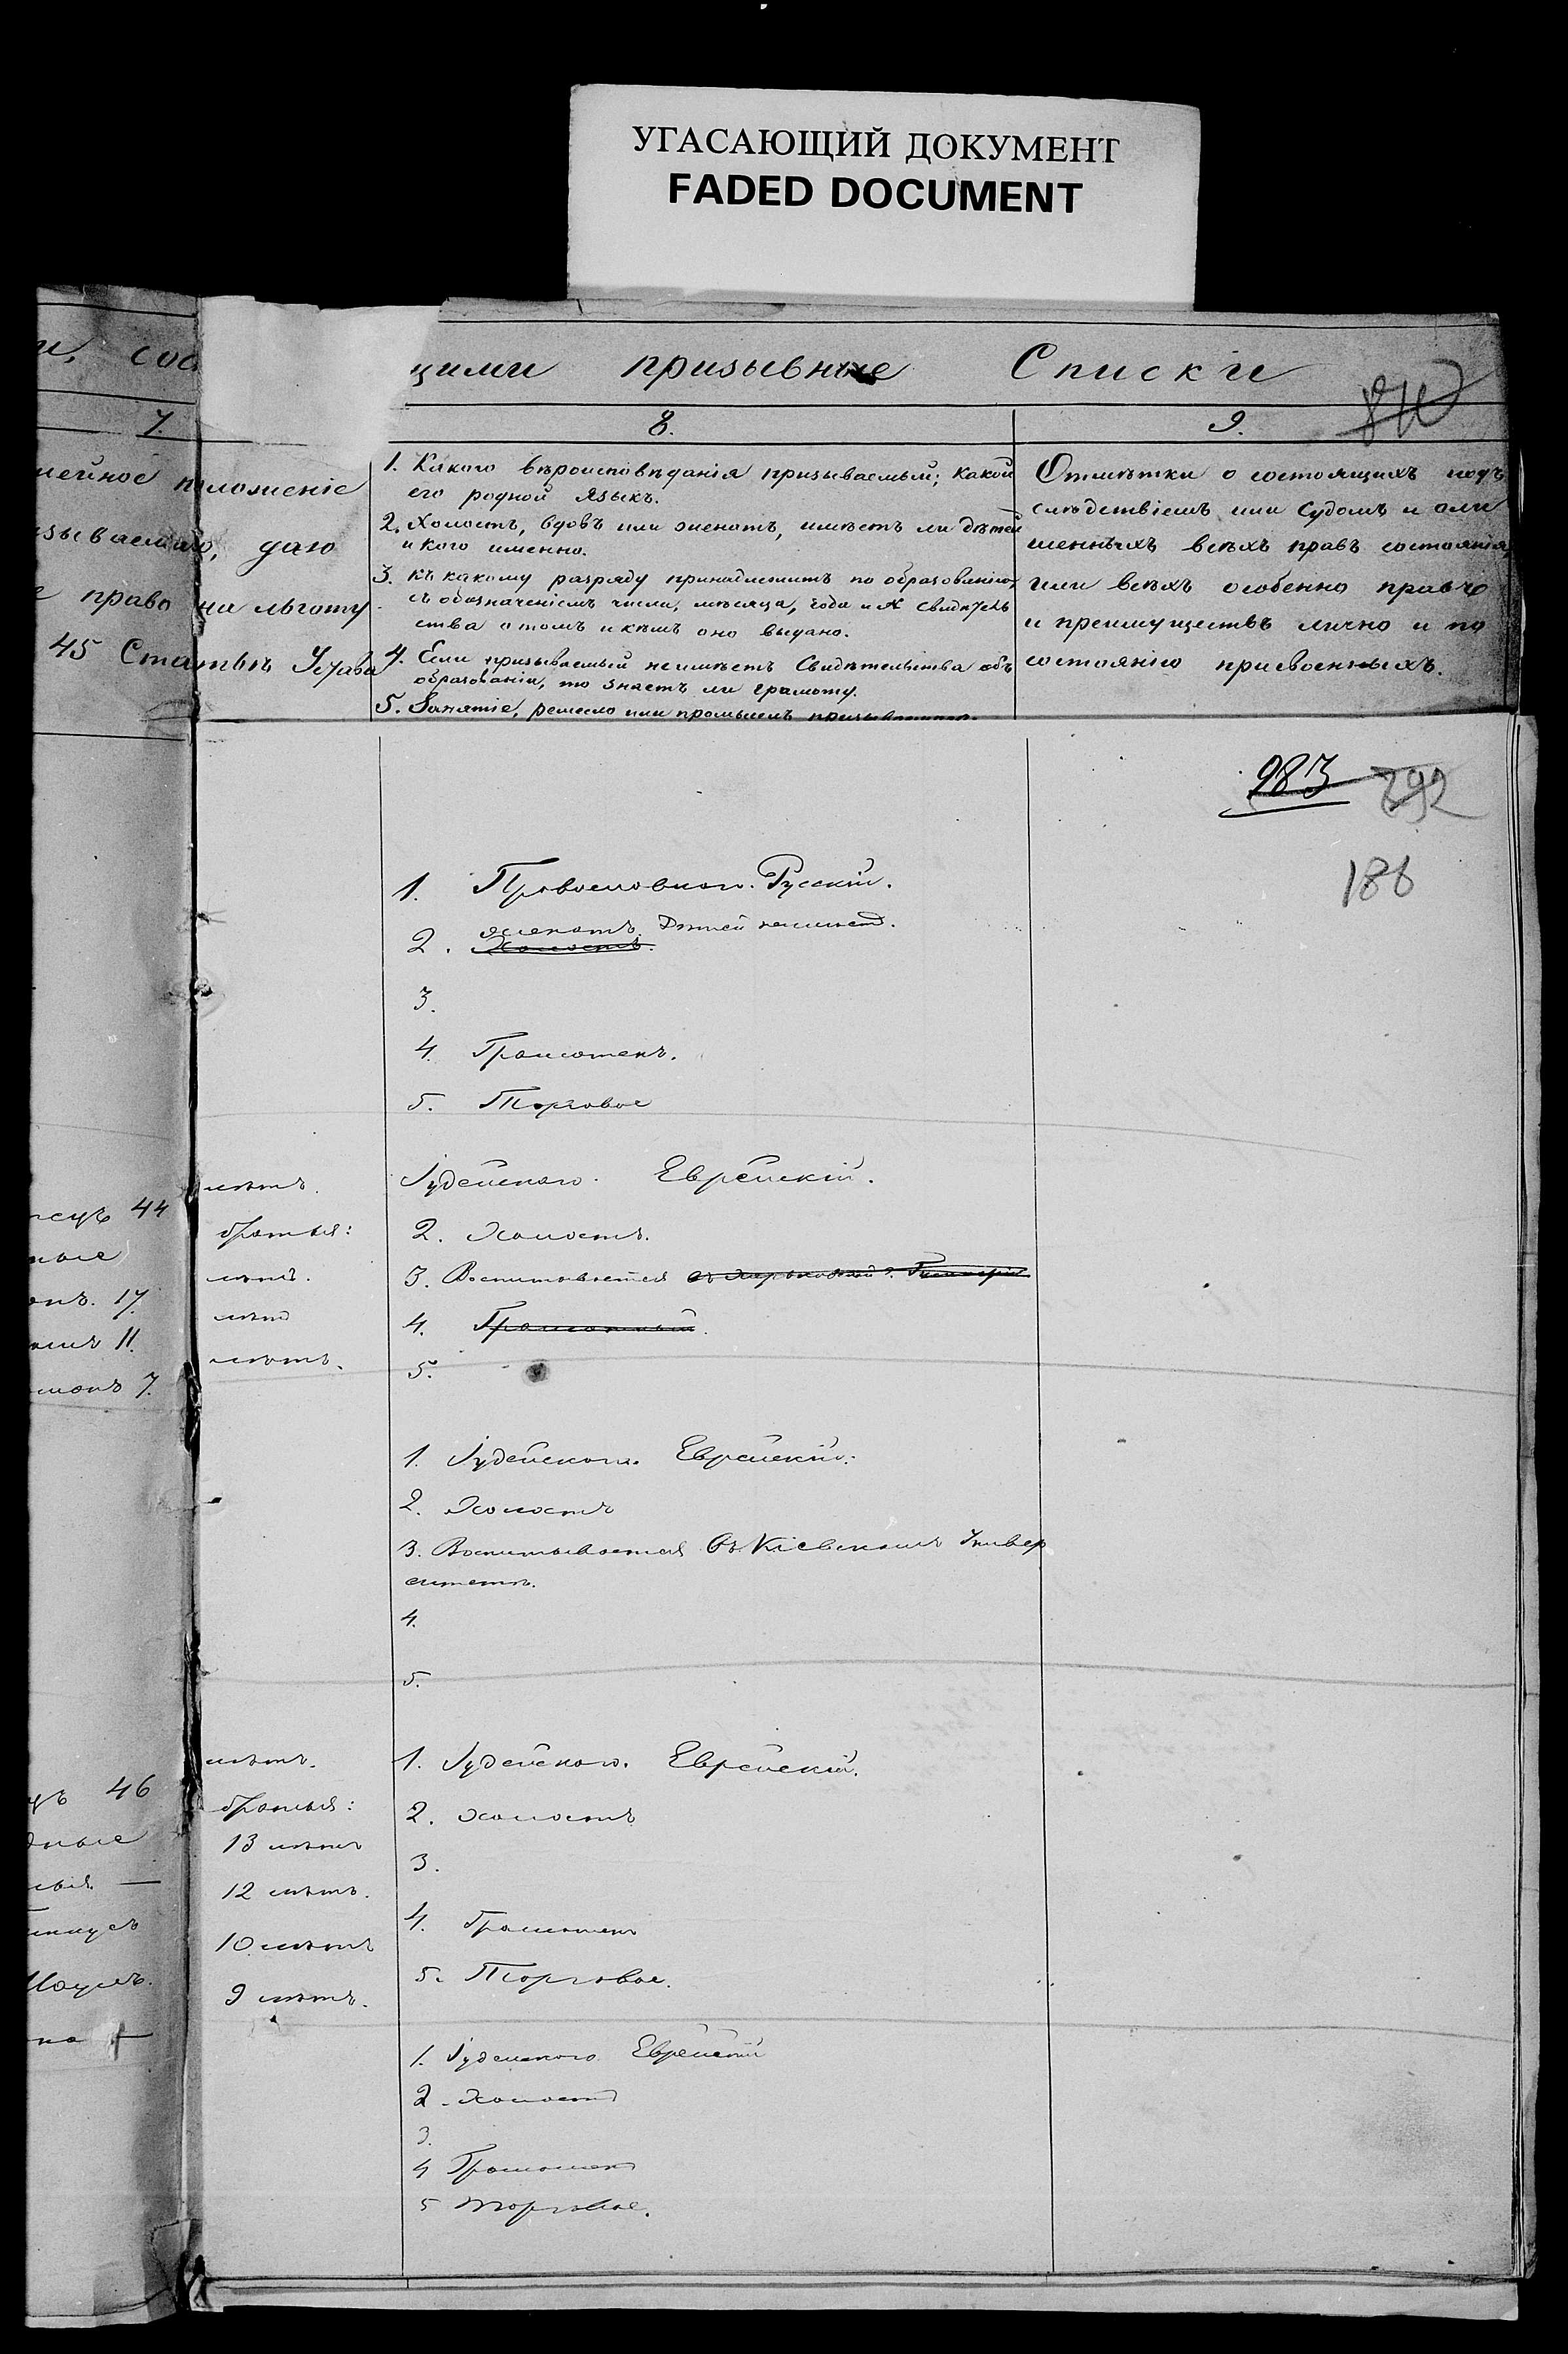 УГАСАЮЩИЙ ДОКУМЕНТ
FADED DOCUMENT
щими призывные Списки
7.
8.
9.
положеніе
даю
право на льготу
45 Статьѣ Устава
1. Какого вѣроисповѣданія призываемый; какой
его родной языкъ.
2. Холостъ, вдовъ или женатъ, имѣетъ ли дѣтей
и кого именно.
3. къ какому разряду принадлежитъ по образованію,
съ обозначеніемъ числа, мѣсяца, года и № свидѣтель
ства о томъ и кѣмъ оно выдано.
4. Если призываемый неимѣетъ Свидѣтельства объ
образованіи, то знаетъ ли грамоту.
5. Занятіе, ремесло или промыселъ призываемаго.
Отмѣтки о состоящихъ подъ
слѣдствіемъ или Судомъ и оли
шенныхъ всѣхъ правъ состоянія,
или всѣхъ особенно правъ
и преимуществъ лично и по
состоянію присвоенныхъ.
983 292
186
1. Православнаго. Русскій.
женатъ. Дѣтей неимеетъ.
2. Холостъ.
3.
4. Грамотенъ.
5. Торговое
44
17
11.
7.
лѣтъ.
братья:
лѣтъ.
лѣтъ
лѣтъ.
Іудейскаго. Еврейскій.
2. Холостъ.
3. Воспитывается
4. Грамотный.
5.
1. Іудейскаго. Еврейскій.
2. Холостъ
3. Воспитывается Въ Кіевскомъ Универ
ситетѣ.
4.
5.
46
лѣтъ.
братья:
13 лѣтъ
12 лѣтъ.
10 лѣтъ
9 лѣтъ.
1. Іудейскаго. Еврейскій.
2. холостъ
3.
4. Грамотенъ
5. Торговое.
1. Іудейскаго Еврейскій
2. Холостъ
3.
4 Грамотенъ
5 торговое.